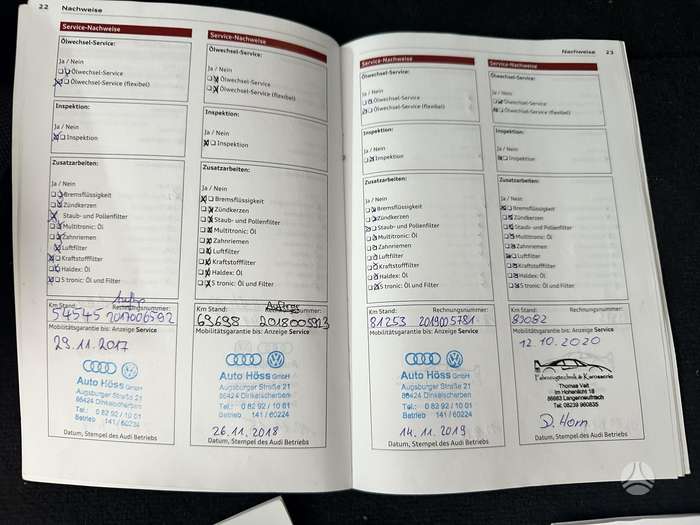 22 Nachweise
Service-Nachweise
Ölwechsel-Service:
Ja / Nein
Ölwechsel-Service
Ölwechsel-Service (flexibel)
Inspektion:
Ja / Nein
Inspektion
Zusatzarbeiten:
Ja / Nein
Bremsflüssigkeit
Zündkerzen
Staub- und Pollenfilter
Multitronic: Öl
Zahnriemen
Luftfilter
Kraftstofffilter
Haldex: Öl
S tronic: Öl und Filter
Km Stand: Rechnungsnummer:
54545
Mobilitätsgarantie bis: Anzeige Service
29.11.2017
Auto Höss GmbH
Augsburger Straße 21
86424 Dinkelscherben
Tel.: 0 82 92 / 10 01
Betrieb 141 / 60224
Datum, Stempel des Audi Betriebs
Service-Nachweise
Ölwechsel-Service:
Ja / Nein
Ölwechsel-Service
Ölwechsel-Service (flexibel)
Inspektion:
Ja / Nein
Inspektion
Zusatzarbeiten:
Ja / Nein
Bremsflüssigkeit
Zündkerzen
Staub- und Pollenfilter
Multitronic: Öl
Zahnriemen
Luftfilter
Kraftstofffilter
Haldex: Öl
S tronic: Öl und Filter
Km Stand: Rechnungsnummer:
69698
Mobilitätsgarantie bis: Anzeige Service
Auto Höss GmbH
Augsburger Straße 21
86424 Dinkelscherben
Tel.: 0 82 92 / 10 01
Betrieb 141 / 60224
26.11.2018
Datum, Stempel des Audi Betriebs
Nachweise 23
Service-Nachweise
Ölwechsel-Service:
Ja / Nein
Ölwechsel-Service
Ölwechsel-Service (flexibel)
Inspektion:
Ja / Nein
Inspektion
Zusatzarbeiten:
Ja / Nein
Bremsflüssigkeit
Zündkerzen
Staub- und Pollenfilter
Multitronic: Öl
Zahnriemen
Luftfilter
Kraftstofffilter
Haldex: Öl
S tronic: Öl und Filter
Km Stand: Rechnungsnummer:
81253 2019005781
Mobilitätsgarantie bis: Anzeige Service
Auto Höss GmbH
Augsburger Straße 21
86424 Dinkelscherben
Tel.: 0 82 92 / 10 01
Betrieb 141 / 60224
14.11.2019
Datum, Stempel des Audi Betriebs
Service-Nachweise
Ölwechsel-Service:
Ja / Nein
Ölwechsel-Service
Ölwechsel-Service (flexibel)
Inspektion:
Ja / Nein
Inspektion
Zusatzarbeiten:
Ja / Nein
Bremsflüssigkeit
Zündkerzen
Staub- und Pollenfilter
Multitronic: Öl
Zahnriemen
Luftfilter
Kraftstofffilter
Haldex: Öl
S tronic: Öl und Filter
Km Stand: Rechnungsnummer:
Mobilitätsgarantie bis: Anzeige Service
12.10.2020
Fahrzeugtechnik & Karosserie
Thomas Veit
86863 Langenneufnach
Tel: 08239 960835
D. Horn
Datum, Stempel des Audi Betriebs